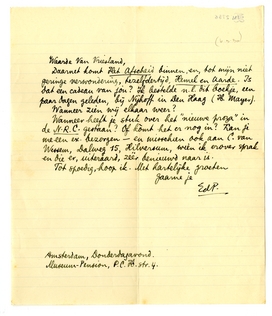 Waarde Van Vriesland,
Daarnet komt Het Afscheid binnen, en, tot mijn niet
geringe verwondering, terzelfdertijd, Hemel en Aarde. Is
dat een cadeau van jou? Ik bestelde n.l. dit boekje, een
paar dagen geleden, bij Nijhoff in den Haag (H. Mayer).
Wanneer zien wij elkaar weer?
Wanneer heeft je stuk over het "nieuwe proza" in
de N.R.C. gestaan? Of komt het er nog in? Kan je
me een ex. bezorgen — en misschien ook aan C. van
Wessem, Dalweg 15, Hilversum, wien ik erover sprak
en die er, uiteraard, zeer benieuwd naar is.
Tot spoedig, hoop ik. Met hartelijke groeten
gaarne je
EdP.
Amsterdam, Donderdagavond.
Museum-Pension, P.C. Hstr. 4.